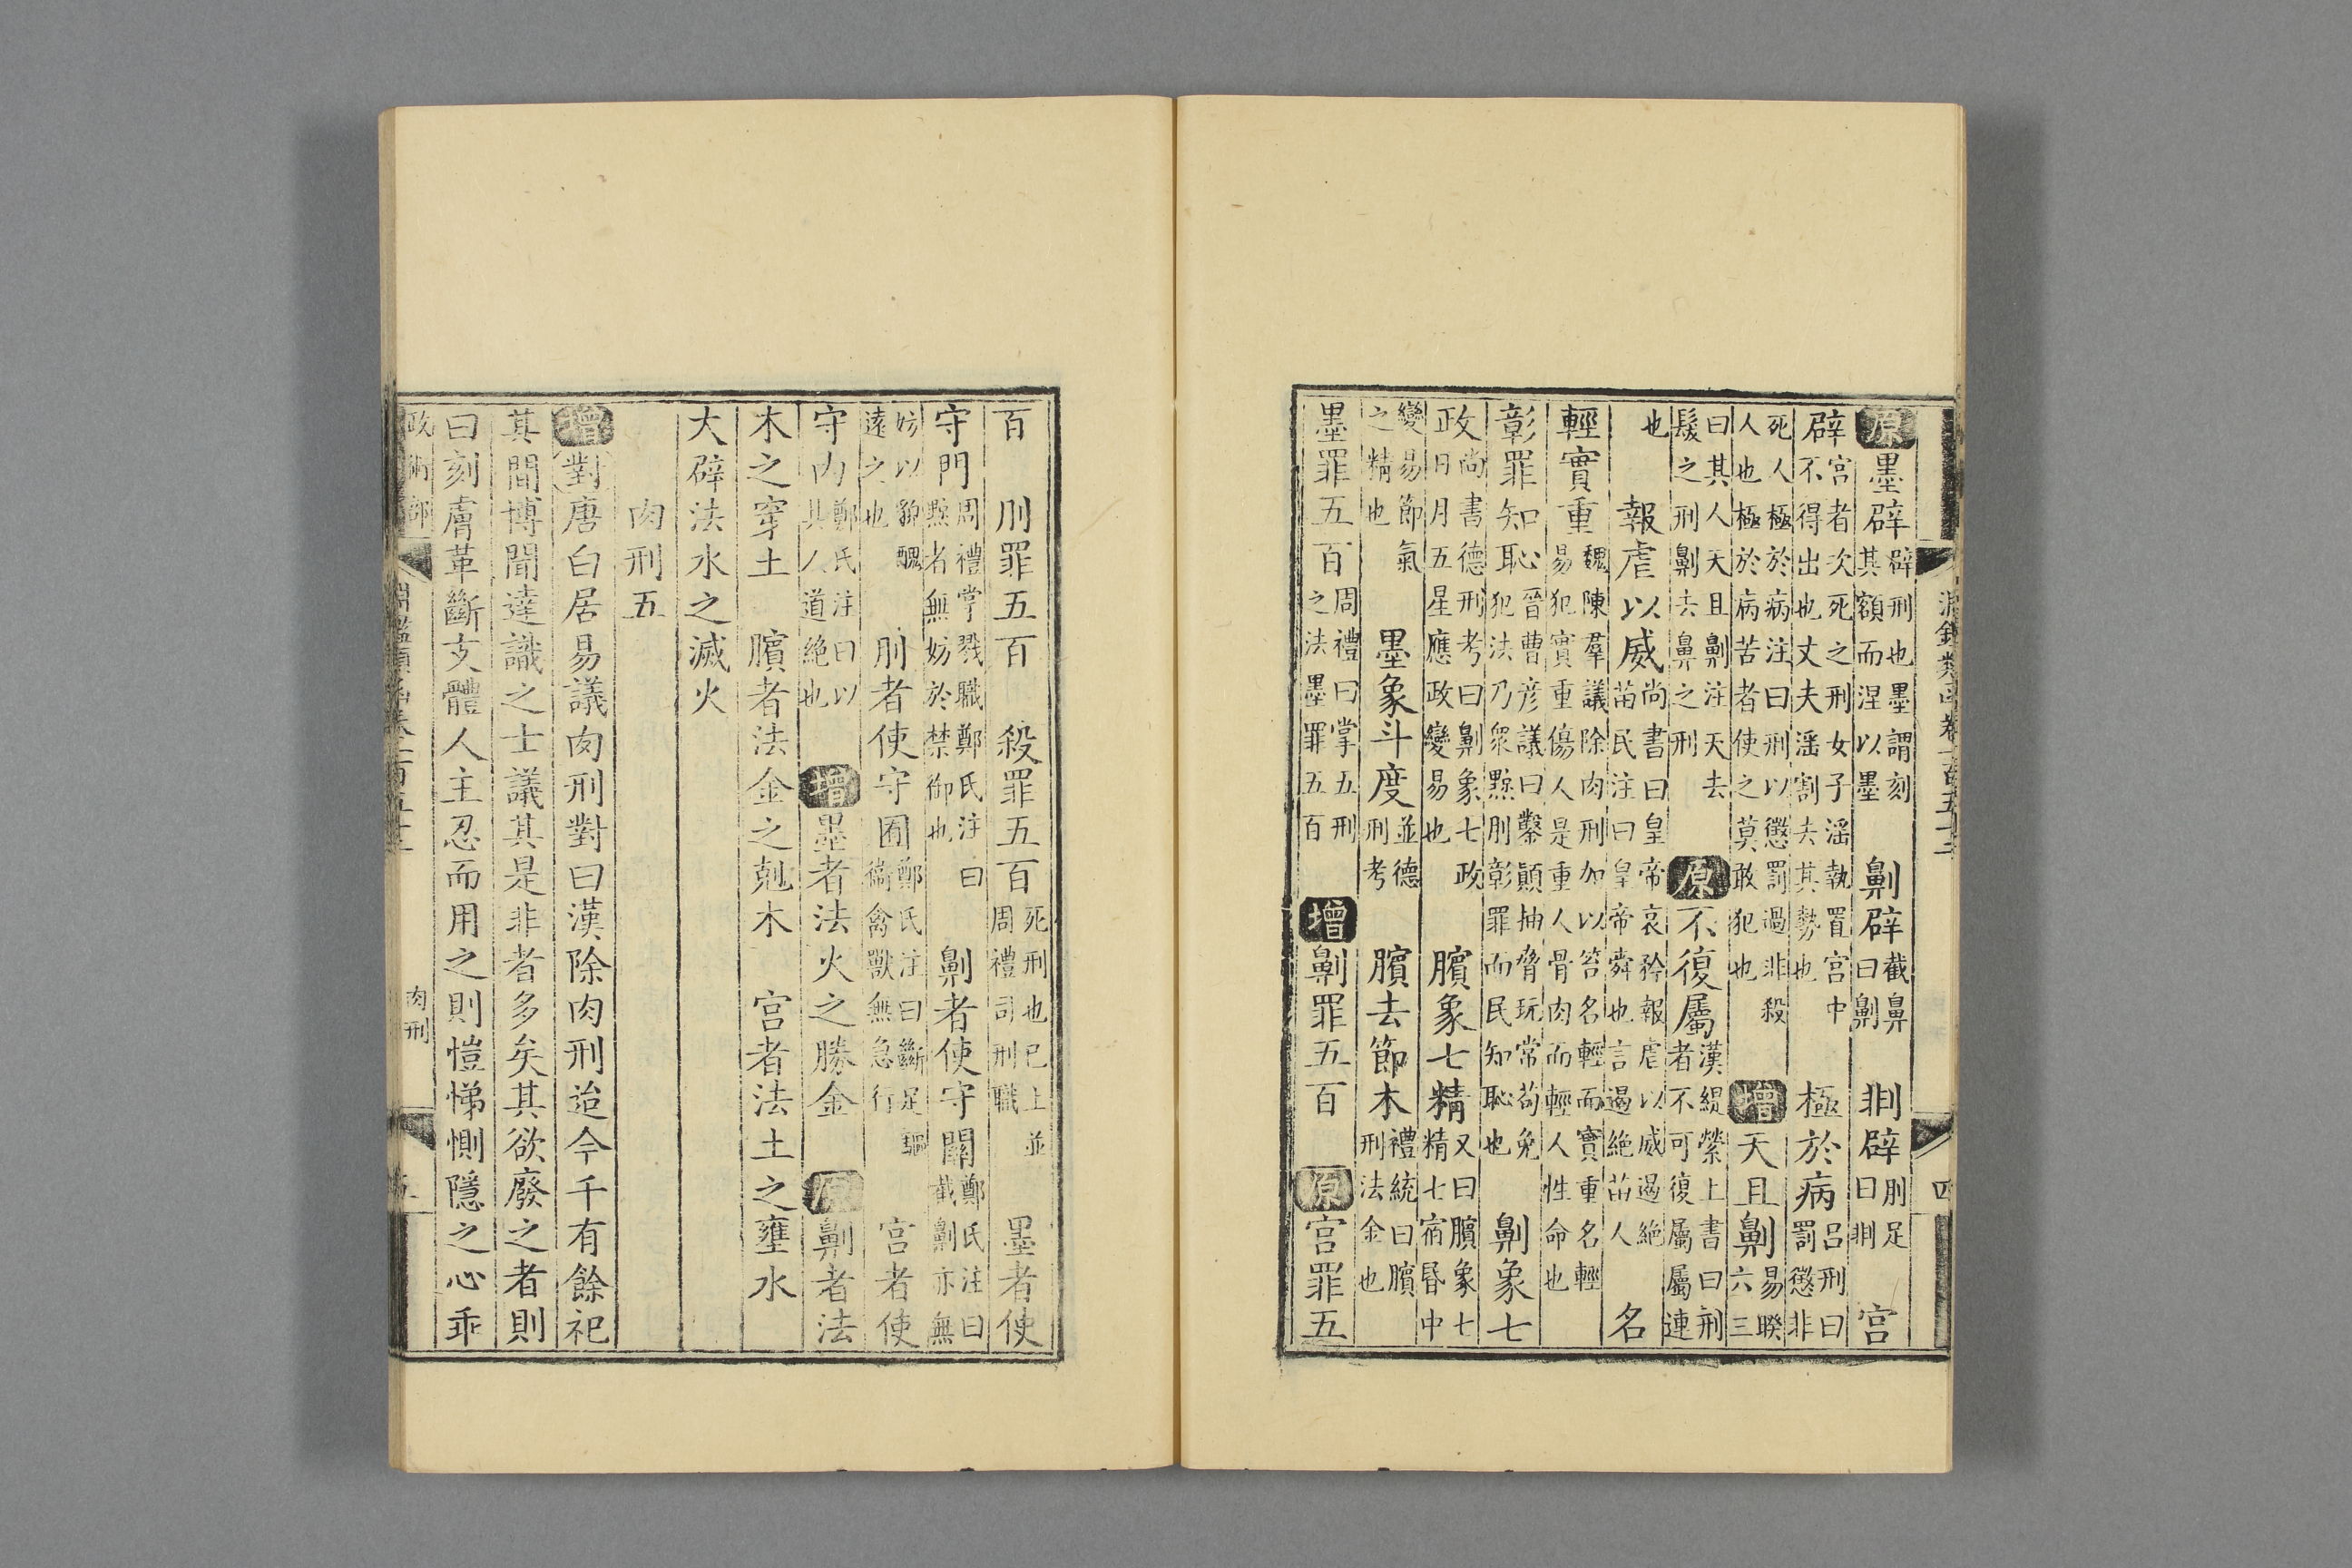 原墨辟辟刑也墨謂刻其額而涅以墨 劓辟截鼻曰劓 剕辟刖足曰剕 宫
辟宫者次死之刑女子淫執置宫中不得出也丈夫淫割去其勢也 極於病吕刑曰罰懲非
死人極於病注曰刑以懲罰過非殺人也極於病苦者使之莫敢犯也 增天且劓易睽六三
曰其人天且劓注天去髮之刑劓去鼻之刑 原不復屬漢緹縈上書曰刑者不可復屬屬連
也 報虐以威尚書曰皇帝哀矜報虐以威遏絶苗民注曰皇帝舜也言遏絶苗人 名
輕實重魏陳羣議除肉刑加以笞名輕而實重名輕易犯實重傷人是重人骨肉而輕人性命也
彰罪知恥晉曹彦議曰鑿顛抽脅玩常苟免犯法乃衆黥刖彰罪而民知恥也 劓象七
政尚書德刑考曰劓象七政日月五星應政變易也 臏象七精又曰臏象七精七宿昬中
變易節氣之精也 墨象斗度並德刑考 臏去節木禮統曰臏刑法金也
墨罪五百周禮曰掌五刑之法墨罪五百 增劓罪五百 原宫罪五
淵鑑類函卷一百五十三 四
百 刖罪五百 殺罪五百死刑也已上並周禮司刑職 墨者使
守門周禮掌戮職鄭氏注曰黥者無妨於禁御也 劓者使守關鄭氏注曰截劓亦無
妨以貌醜遠之也 刖者使守囿鄭氏注曰斷足驅衞禽獸無急行 宫者使
守内鄭氏注曰以其人道絶也 增墨者法火之勝金 原劓者法
木之穿土 臏者法金之剋木 宫者法土之壅水
大辟法水之滅火
肉刑五
增對唐白居易議肉刑對曰漢除肉刑迨今千有餘祀
其間博聞達識之士議其是非者多矣其欲廢之者則
曰刻膚革斷支體人主忍而用之則愷悌惻隱之心乖
政術部 淵鑑類函卷一百五十三 肉刑 五